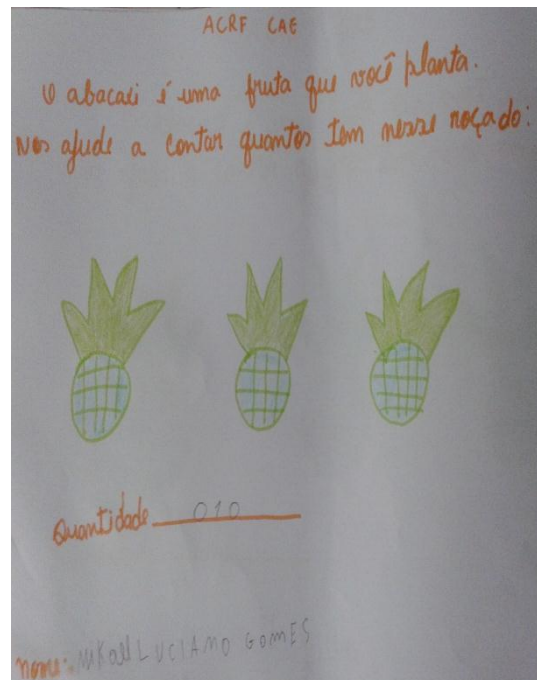 ACRF CAE
O abacaxi é uma fruta que você planta.
Nos ajude a contar quantos tem nesse roçado:
Quantidade 010
nome: Mikael LUCIANO GOMES